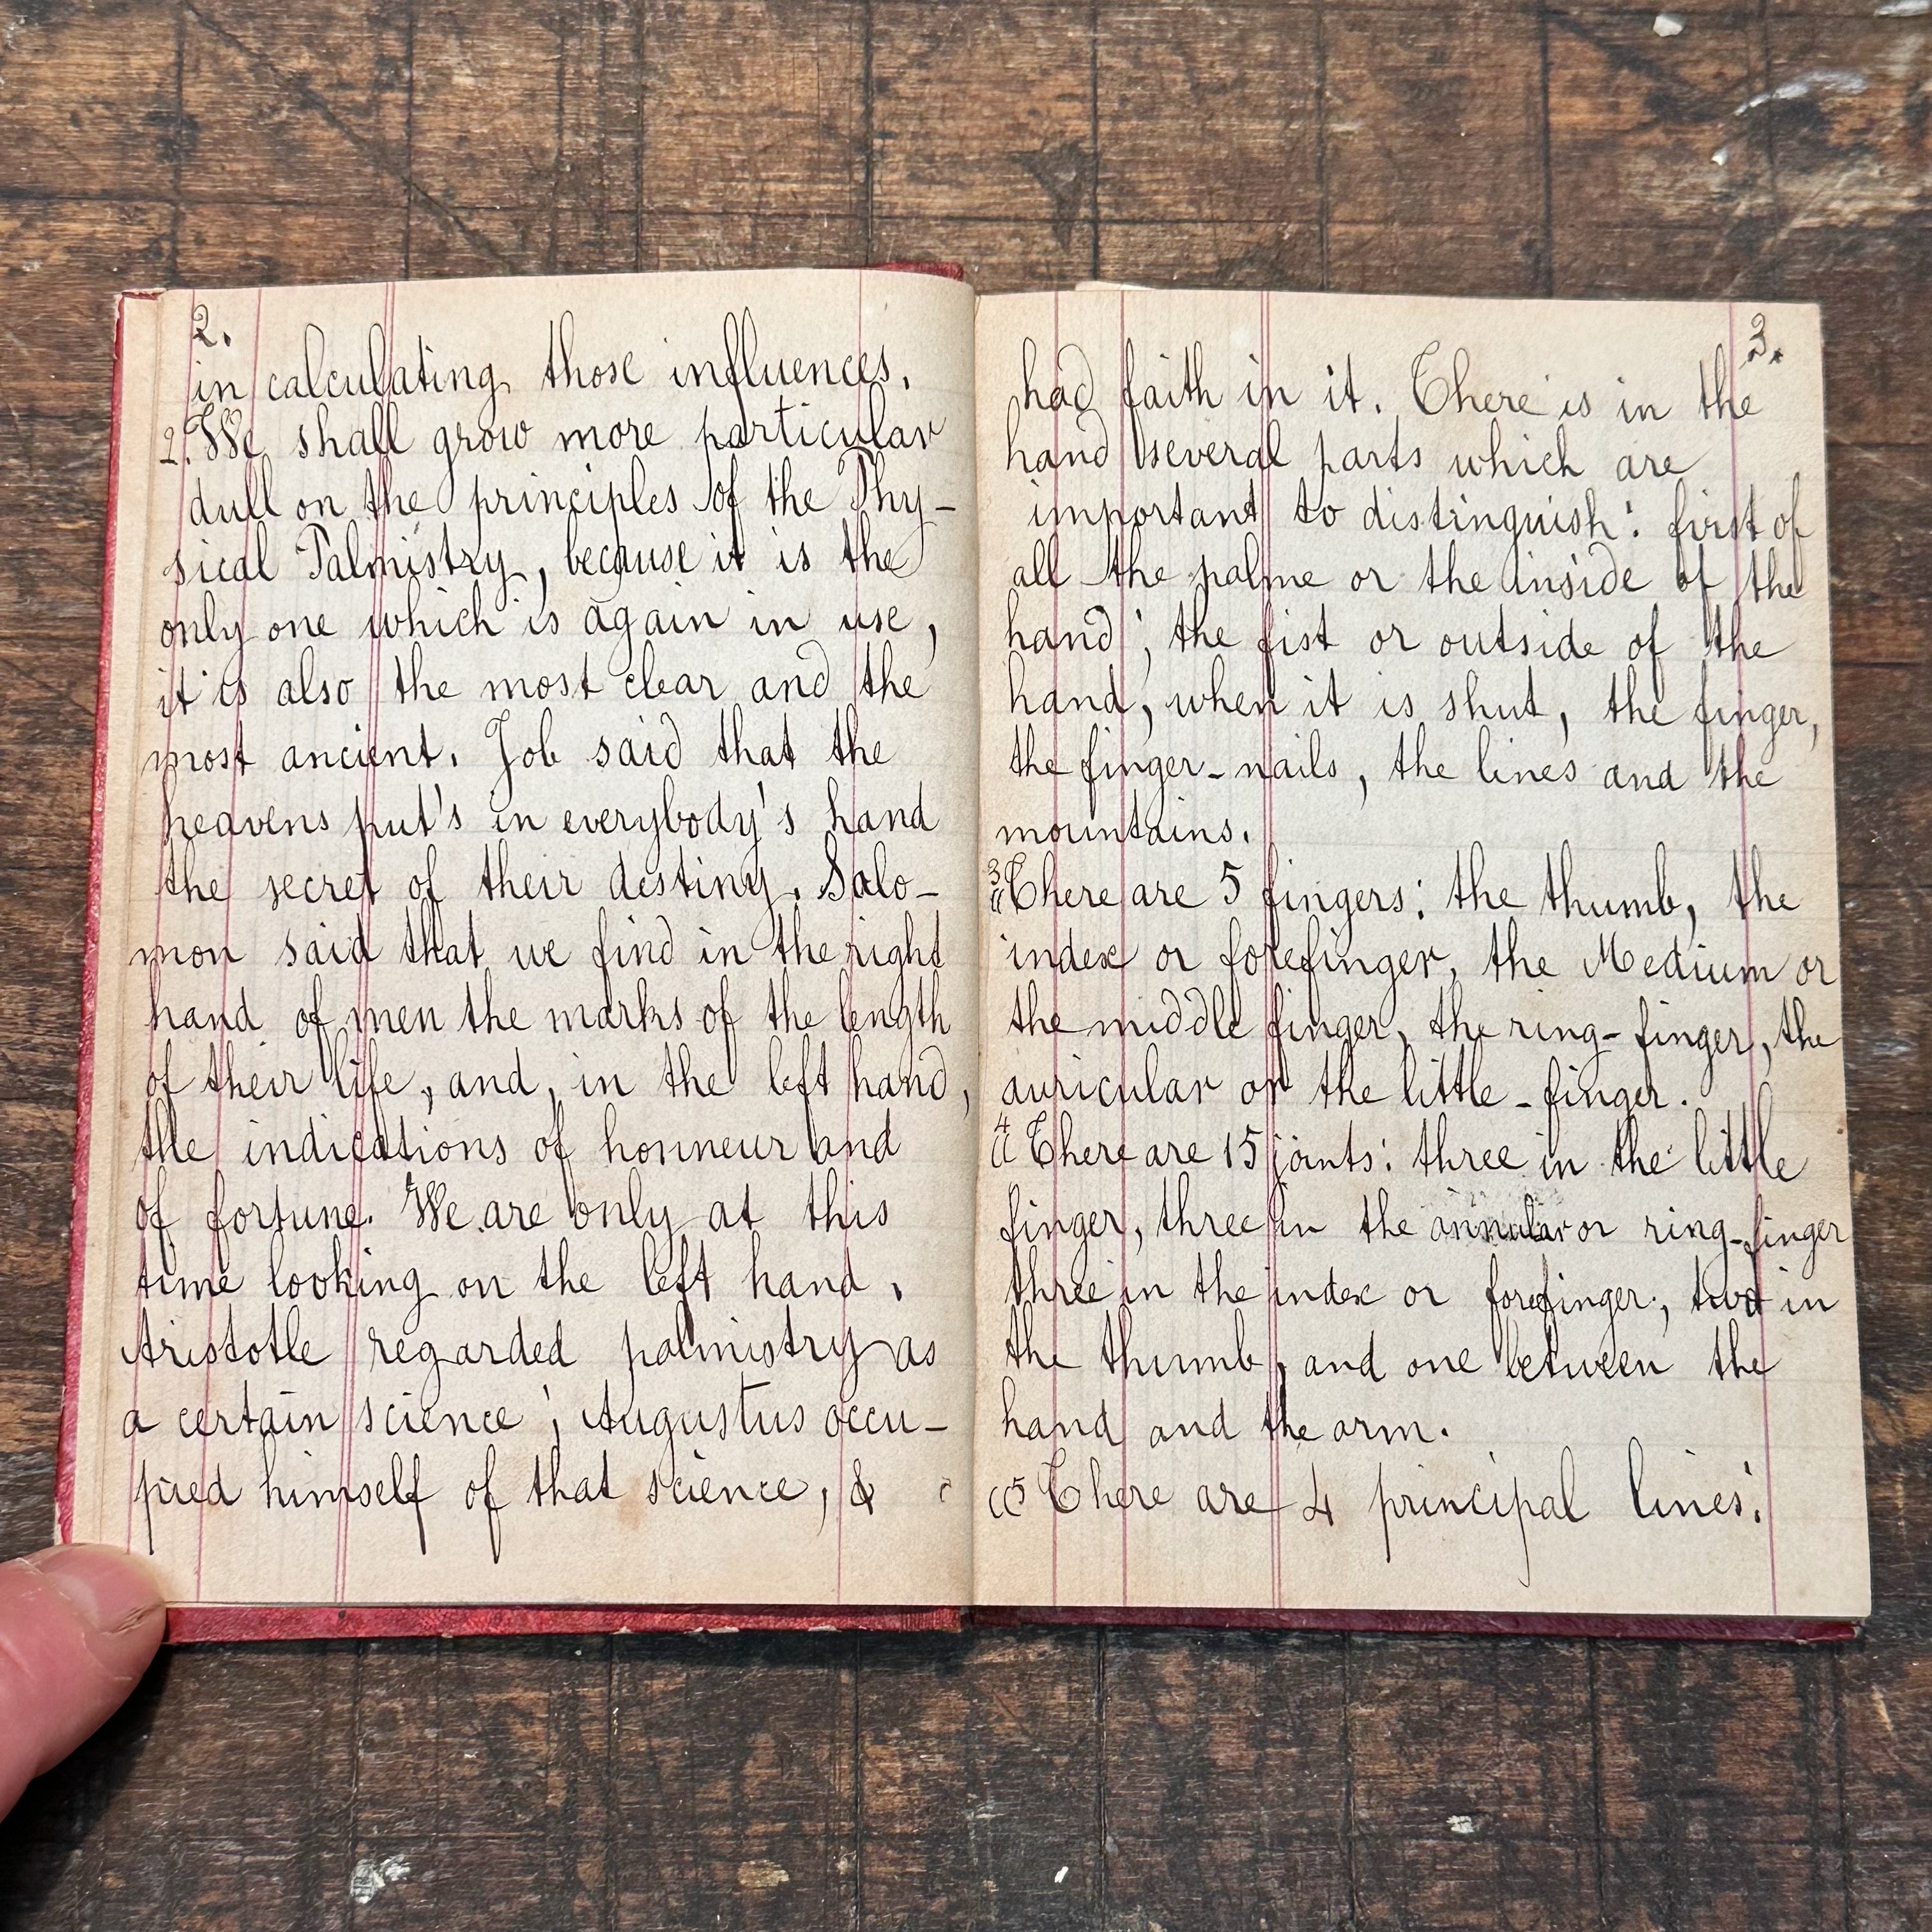 2.
in calculating those influences.
2. We shall grow more particular
dull on the principles of the Phy-
sical Palmistry, because it is the
only one which is again in use,
it is also the most clear and the
most ancient. Job said that the
heavens put's in everybody's hand
the secret of their destiny. Salo-
mon said that we find in the right
hand of men the marks of the length
of their life, and, in the left hand,
the indications of honneur and
of fortune. We are only at this
time looking on the left hand.
Aristotle regarded palmistry as
a certain science; Augustus occu-
pied himself of that science, &
3.
had faith in it. There is in the
hand several parts which are
important to distinguish: first of
all the palme or the inside of the
hand; the fist or outside of the
hand, when it is shut, the finger,
the finger-nails, the lines and the
mountains.
3 There are 5 fingers: the thumb, the
index or forefinger, the Medium or
the middle finger, the ring-finger, the
auricular or the little-finger.
4 There are 15 joints: three in the little
finger, three in the annular or ring-finger
three in the index or forefinger, two in
the thumb, and one between the
hand and the arm.
5 There are 4 principal lines: